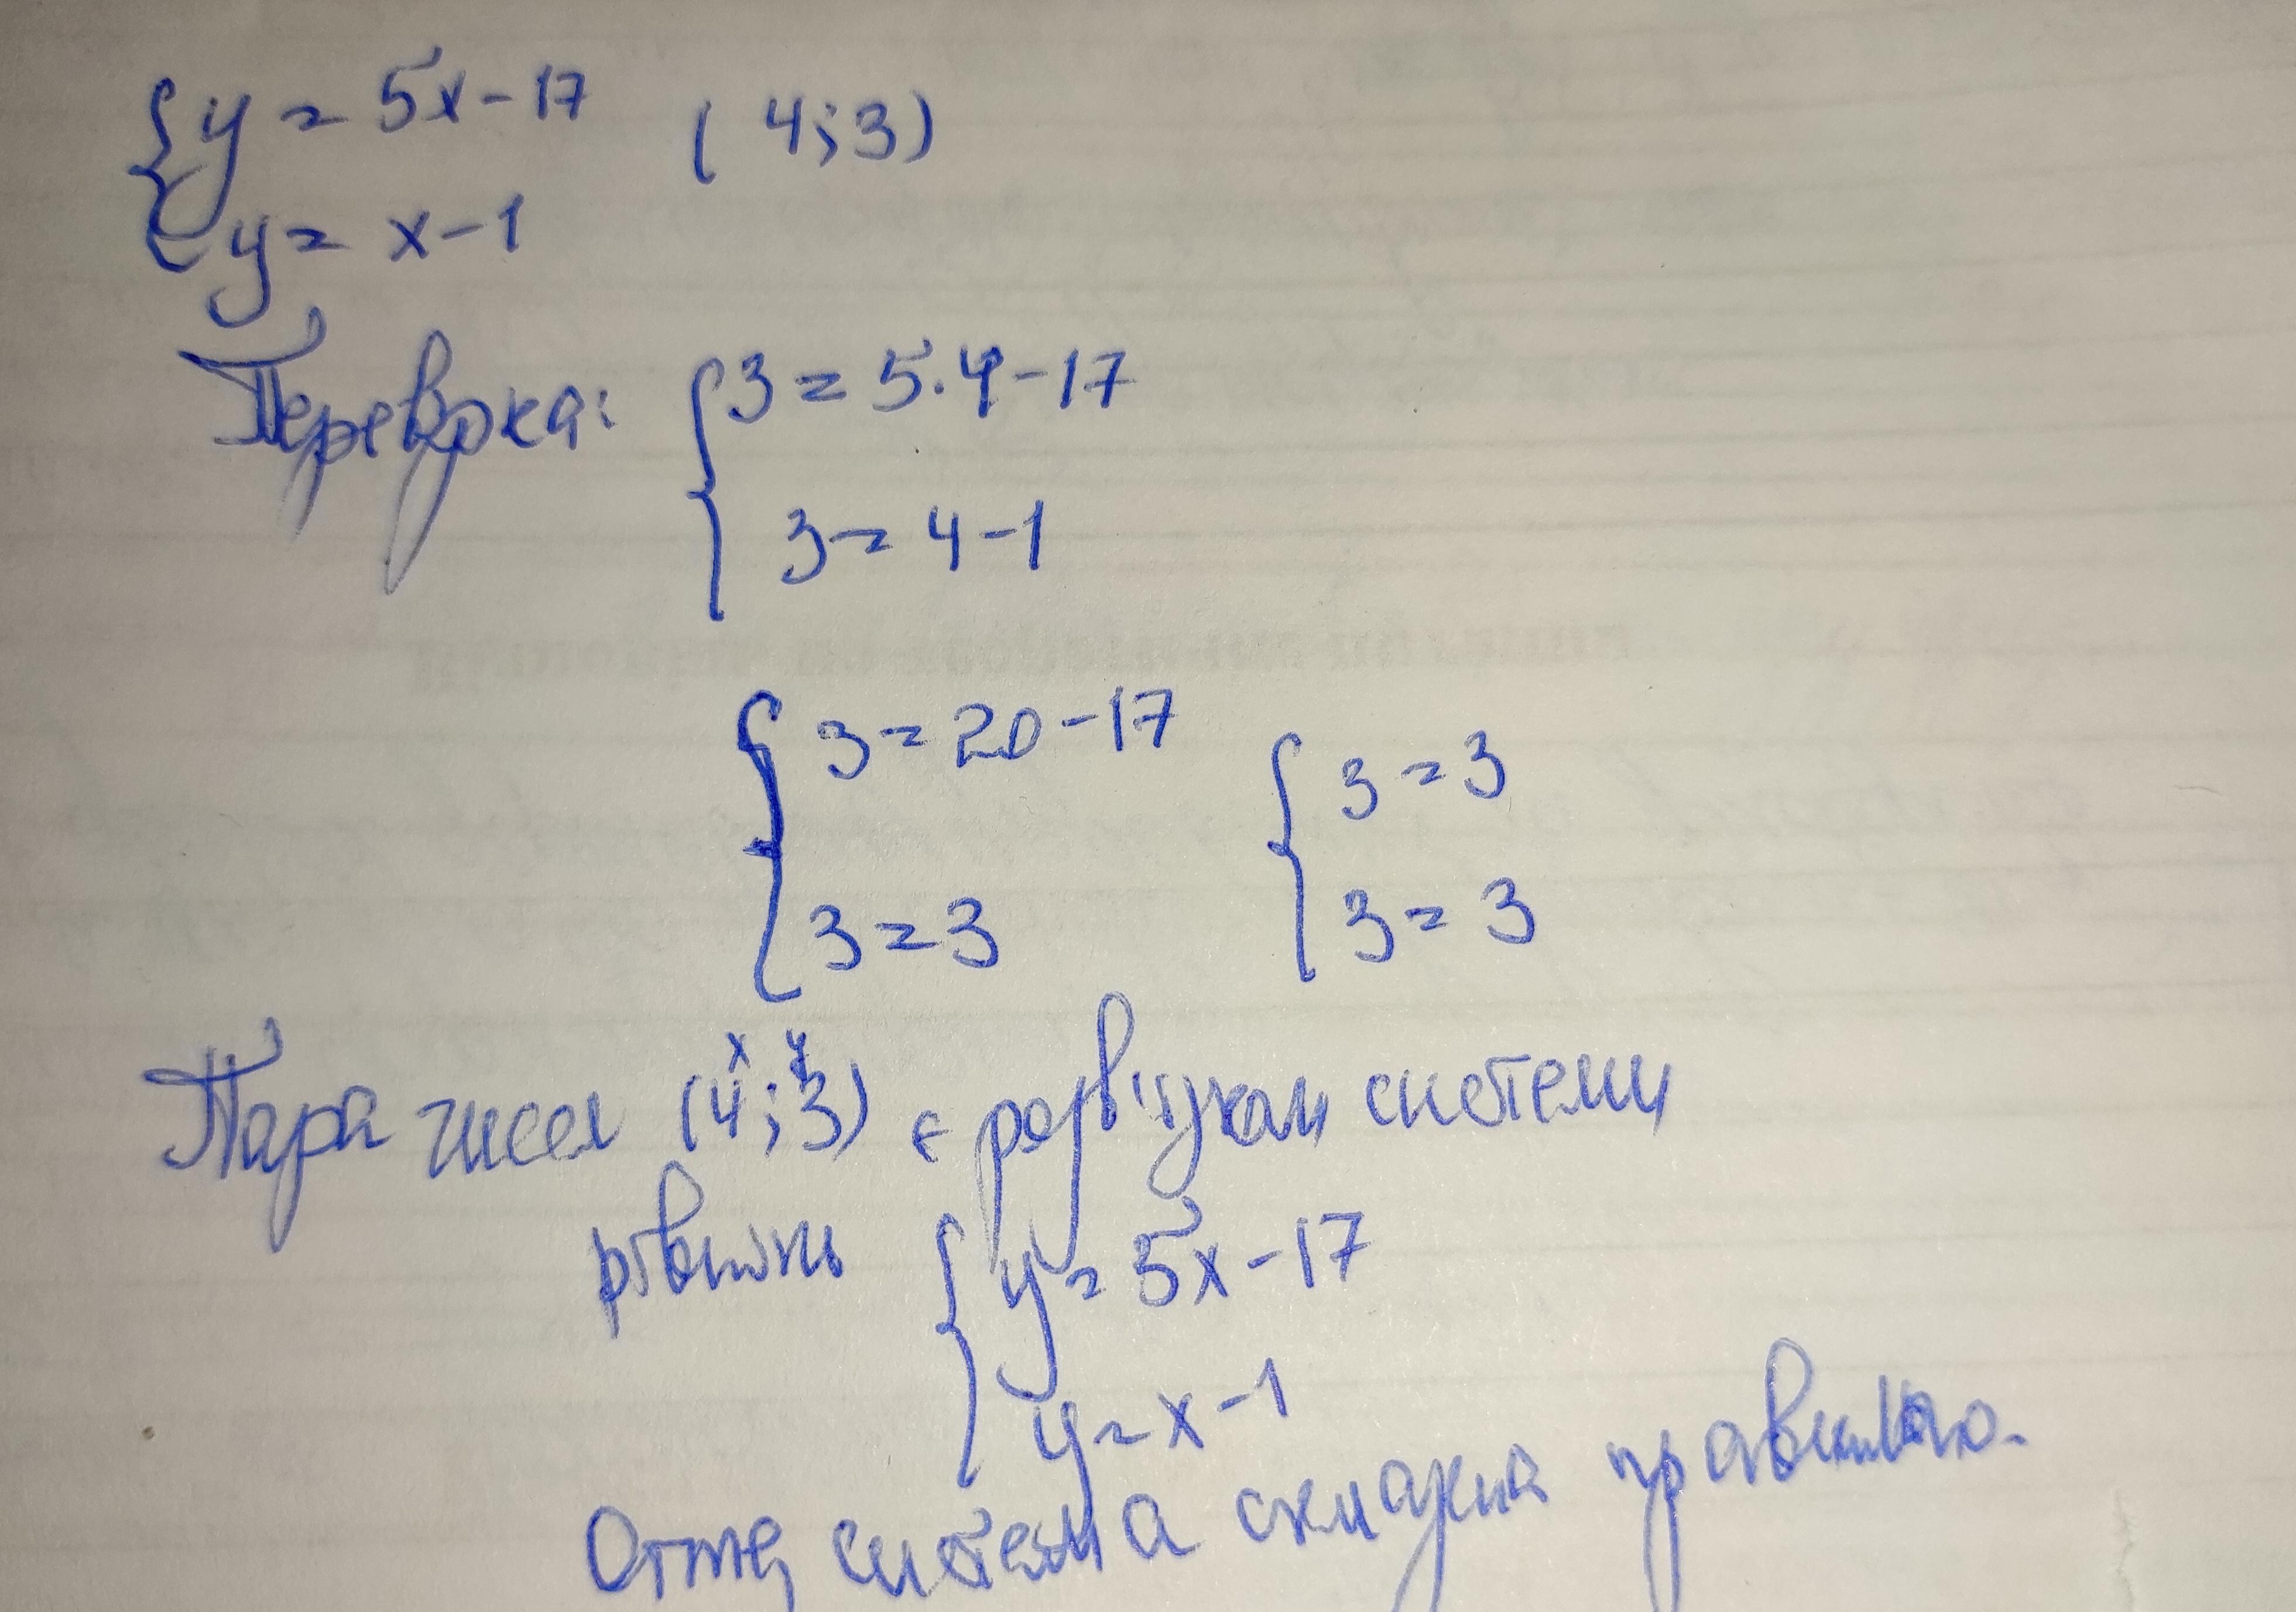 { y = 5x - 17 (4; 3)
y = x - 1
Перевірка: { 3 = 5·4 - 17
3 = 4 - 1
{ 3 = 20 - 17 { 3 = 3
3 = 3 3 = 3
x y
Пара чисел (4; 3) є розв'язком системи
рівнянь { y = 5x - 17
y = x - 1
Отже, система складена правильно.